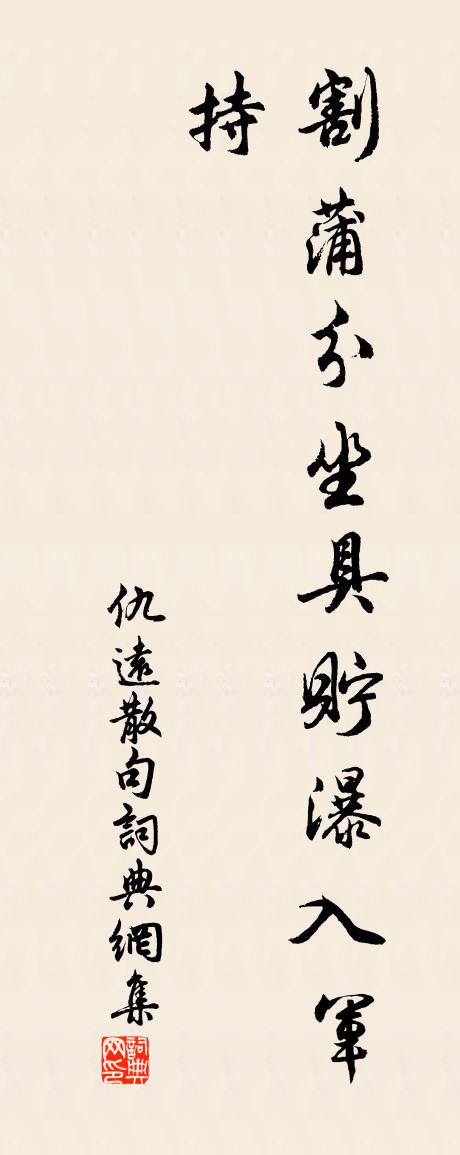 割蒲分坐具貯瀑入軍
持
仇遠散句詞典網集
詞典
网印